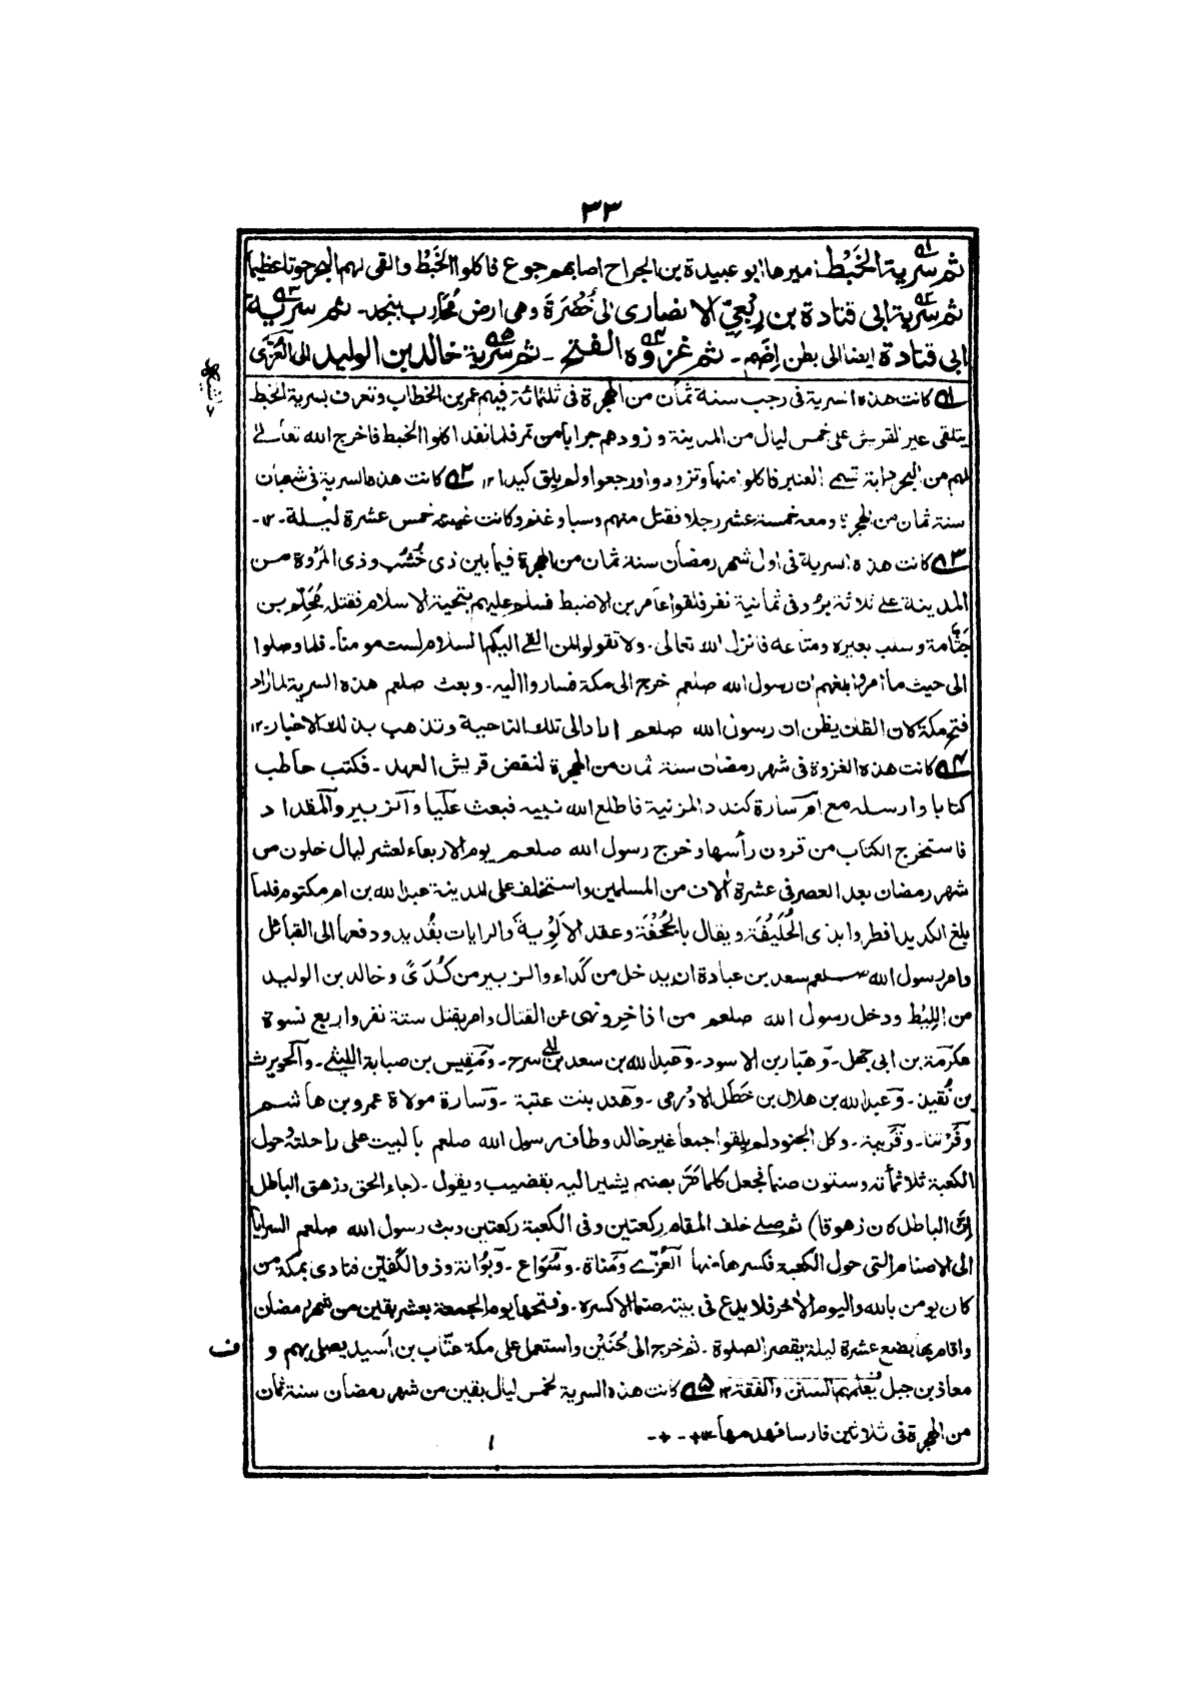 ٣٣
ثم سرية الخَبَط اميرها ابو عبيدة بن الجراح اصابهم جوع فاكلوا الخَبَطُ والقى لهم البحر حوتا عظيما
ثم سرية ابى قتادة بن رِبْعيّ الانصارى الى خُضْرَةَ وهى ارض مُحَارِب بنجد ـ ثم سرية
ابى قتادة ايضا الى بطن اِضَم ـ ثم غزوة الفتح ـ ثم سرية خالد بن الوليد الى العُزّى
٥١ كانت هذه السرية فى رجب سنة ثمان من الهجرة فى ثلثمائة فيهم عمر بن الخطاب وتعرف بسرية الخبط
يتلقى عير لقريش على خمس ليال من المدينة وزودهم جرابا من تمر فلما نفد اكلوا الخبط فاخرج الله تعالى
لهم من البحر دابة تسمى العنبر فاكلوا منها وتزودوا ورجعوا ولم يلق كيدا ١٢ ٥٢ كانت هذه السرية فى شعبان
سنة ثمان من الهجرة ومعه خمسة عشر رجلا فقتل منهم وسبا وغنم وكانت غيبته خمس عشرة ليلة ـ ١٢ ـ
٥٣ كانت هذه السرية فى اول شهر رمضان سنة ثمان من الهجرة فيما بين ذى خُشُب وذى المَرْوة من
المدينة على ثلاثة بُرُد فى ثمانية نفر فلقوا عامر بن الاضبط فسلم عليهم بتحية الاسلام فقتله مُحَلِّم بن
جَثَّامة وسلب بعيره ومتاعه فانزل الله تعالى ـ ولا تقولوا لمن القى اليكم السلام لست مومنا ـ فلما وصلوا
الى حيث ما امروا بلغهم ان رسول الله صلعم خرج الى مكة فساروا اليه ـ وبعث صلعم هذه السرية لما اراد
فتح مكة لان الظان يظن ان رسول الله صلعم اراد الى تلك الناحية وتذهب بذلك الاخبار ـ ١٢
٥٤ كانت هذه الغزوة فى شهر رمضان سنة ثمان من الهجرة لنقض قريش العهد ـ فكتب حاطب
كتابا وارسله مع ام سارة كنود المزنية فاطلع الله نبيه فبعث عليا والزبير والمقداد
فاستخرج الكتاب من قرون رأسها وخرج رسول الله صلعم يوم الاربعاء لعشر ليال خلون من
شهر رمضان بعد العصر فى عشرة الاف من المسلمين واستخلف على المدينة عبد الله بن ام مكتوم فلما
بلغ الكديد افطر وابذى الحُلَيْفَة ويقال بالجُحْفَة وعقد الالْوِية والرايات بقُديد ودفعها الى القبائل
وامر رسول الله صلعم سعد بن عبادة ان يدخل من كَداء والزبير من كُدَىً وخالد بن الوليد
من اللِيط ودخل رسول الله صلعم من اذاخِر ونهى عن القتال وامر بقتل ستة نفر واربع نسوة
عكرمة بن ابى جهل ـ وهبّار بن الاسود ـ وعبد الله بن سعد بن ابى سرح ـ ومَقِيس بن صبابة الليثى ـ والحويرث
بن نُقيذ ـ وعبد الله بن هلال بن خَطَل الادرمى ـ وهند بنت عتبة ـ وسارة مولاة عمرو بن هاشم
وفَرْتَنا ـ وقَرِيبة ـ وكل الجنود لم يلقوا جمعا غير خالد وطاف رسول الله صلعم بالبيت على راحلته وحول
الكعبة ثلاثمائة وستون صنما فجعل كلما مَرّ بصنم يشير اليه بقضيب ويقول ـ (جاء الحق وزهق الباطل
اِنّ الباطل كان زهوقا) ثم صلى خلف المقام ركعتين وفى الكعبة ركعتين وبث رسول الله صلعم السرايا
الى الاصنام التى حول الكعبة فكسرها منها العُزّى ومَناة ـ وسُوَاع ـ وبُوانة وذو الكفّين فنادى بمكة من
كان يومن بالله واليوم الاخر فلا يدع فى بيته صنما الا كسره ـ وفتحها يوم الجمعة بعشر بقين من شهر رمضان
واقام بها بضع عشرة ليلة يقصر الصلوة ـ ثم خرج الى حُنَيْن واستعمل على مكة عتّاب بن اَسيد يصلى بهم و
ف
معاذ بن جبل يُعلّمهم السنن والفقة ١٢ ٥٥ كانت هذه السرية لخمس ليال بقين من شهر رمضان سنة ثمان
من الهجرة فى ثلاثين فارسا فهدمها ١٢